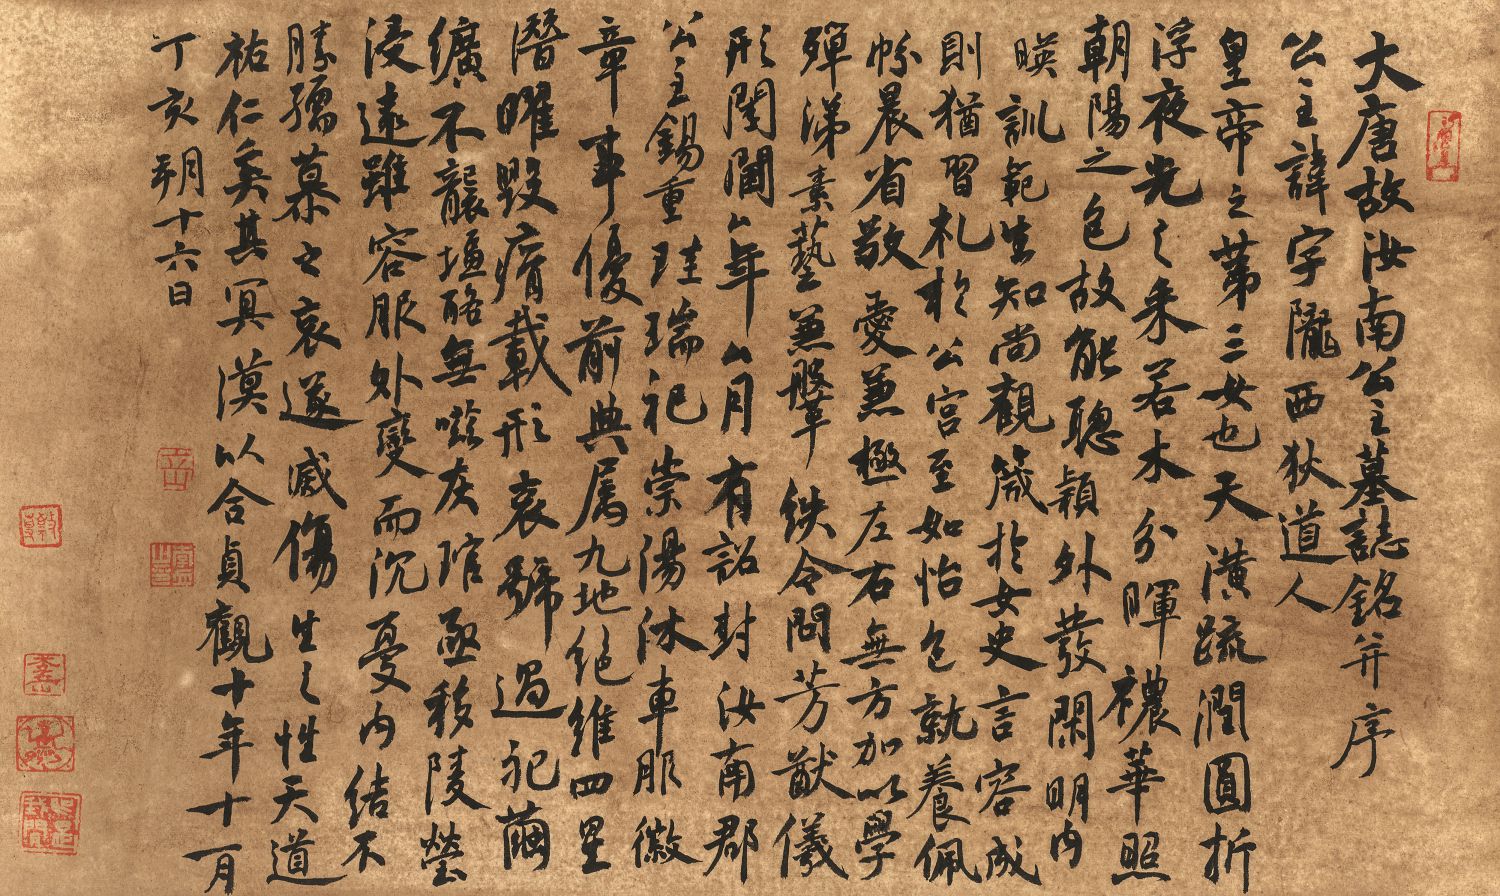 大唐故汝南公主墓誌銘并序
公主諱字隴西狄道人
皇帝之第三女也天潢疏潤圓折
浮夜光之采若木分暉穠華照
朝陽之色故能聰穎外發閑明內
暎訓範生知尚觀箴於女史言容成
則猶習札於公宮至如怡色就養佩
帉晨省敬愛兼極左右無方加以學
殫綈素藝兼鞶紩令問芳猷儀
形閨閫厶年厶月有詔封汝南郡
公主錫重珪瑞祀崇湯沐車服徽
章事優前典属九地絕維四星
潛曜毀瘠載形哀號過祀繭
纊不襲塩酪無嗞灰琯亟移陵塋
浸遠雖容服外變而沉憂內結不
勝孺慕之哀遂戚傷生之性天道
祐仁奚其冥漠以今貞觀十年十一月
丁亥朔十六日